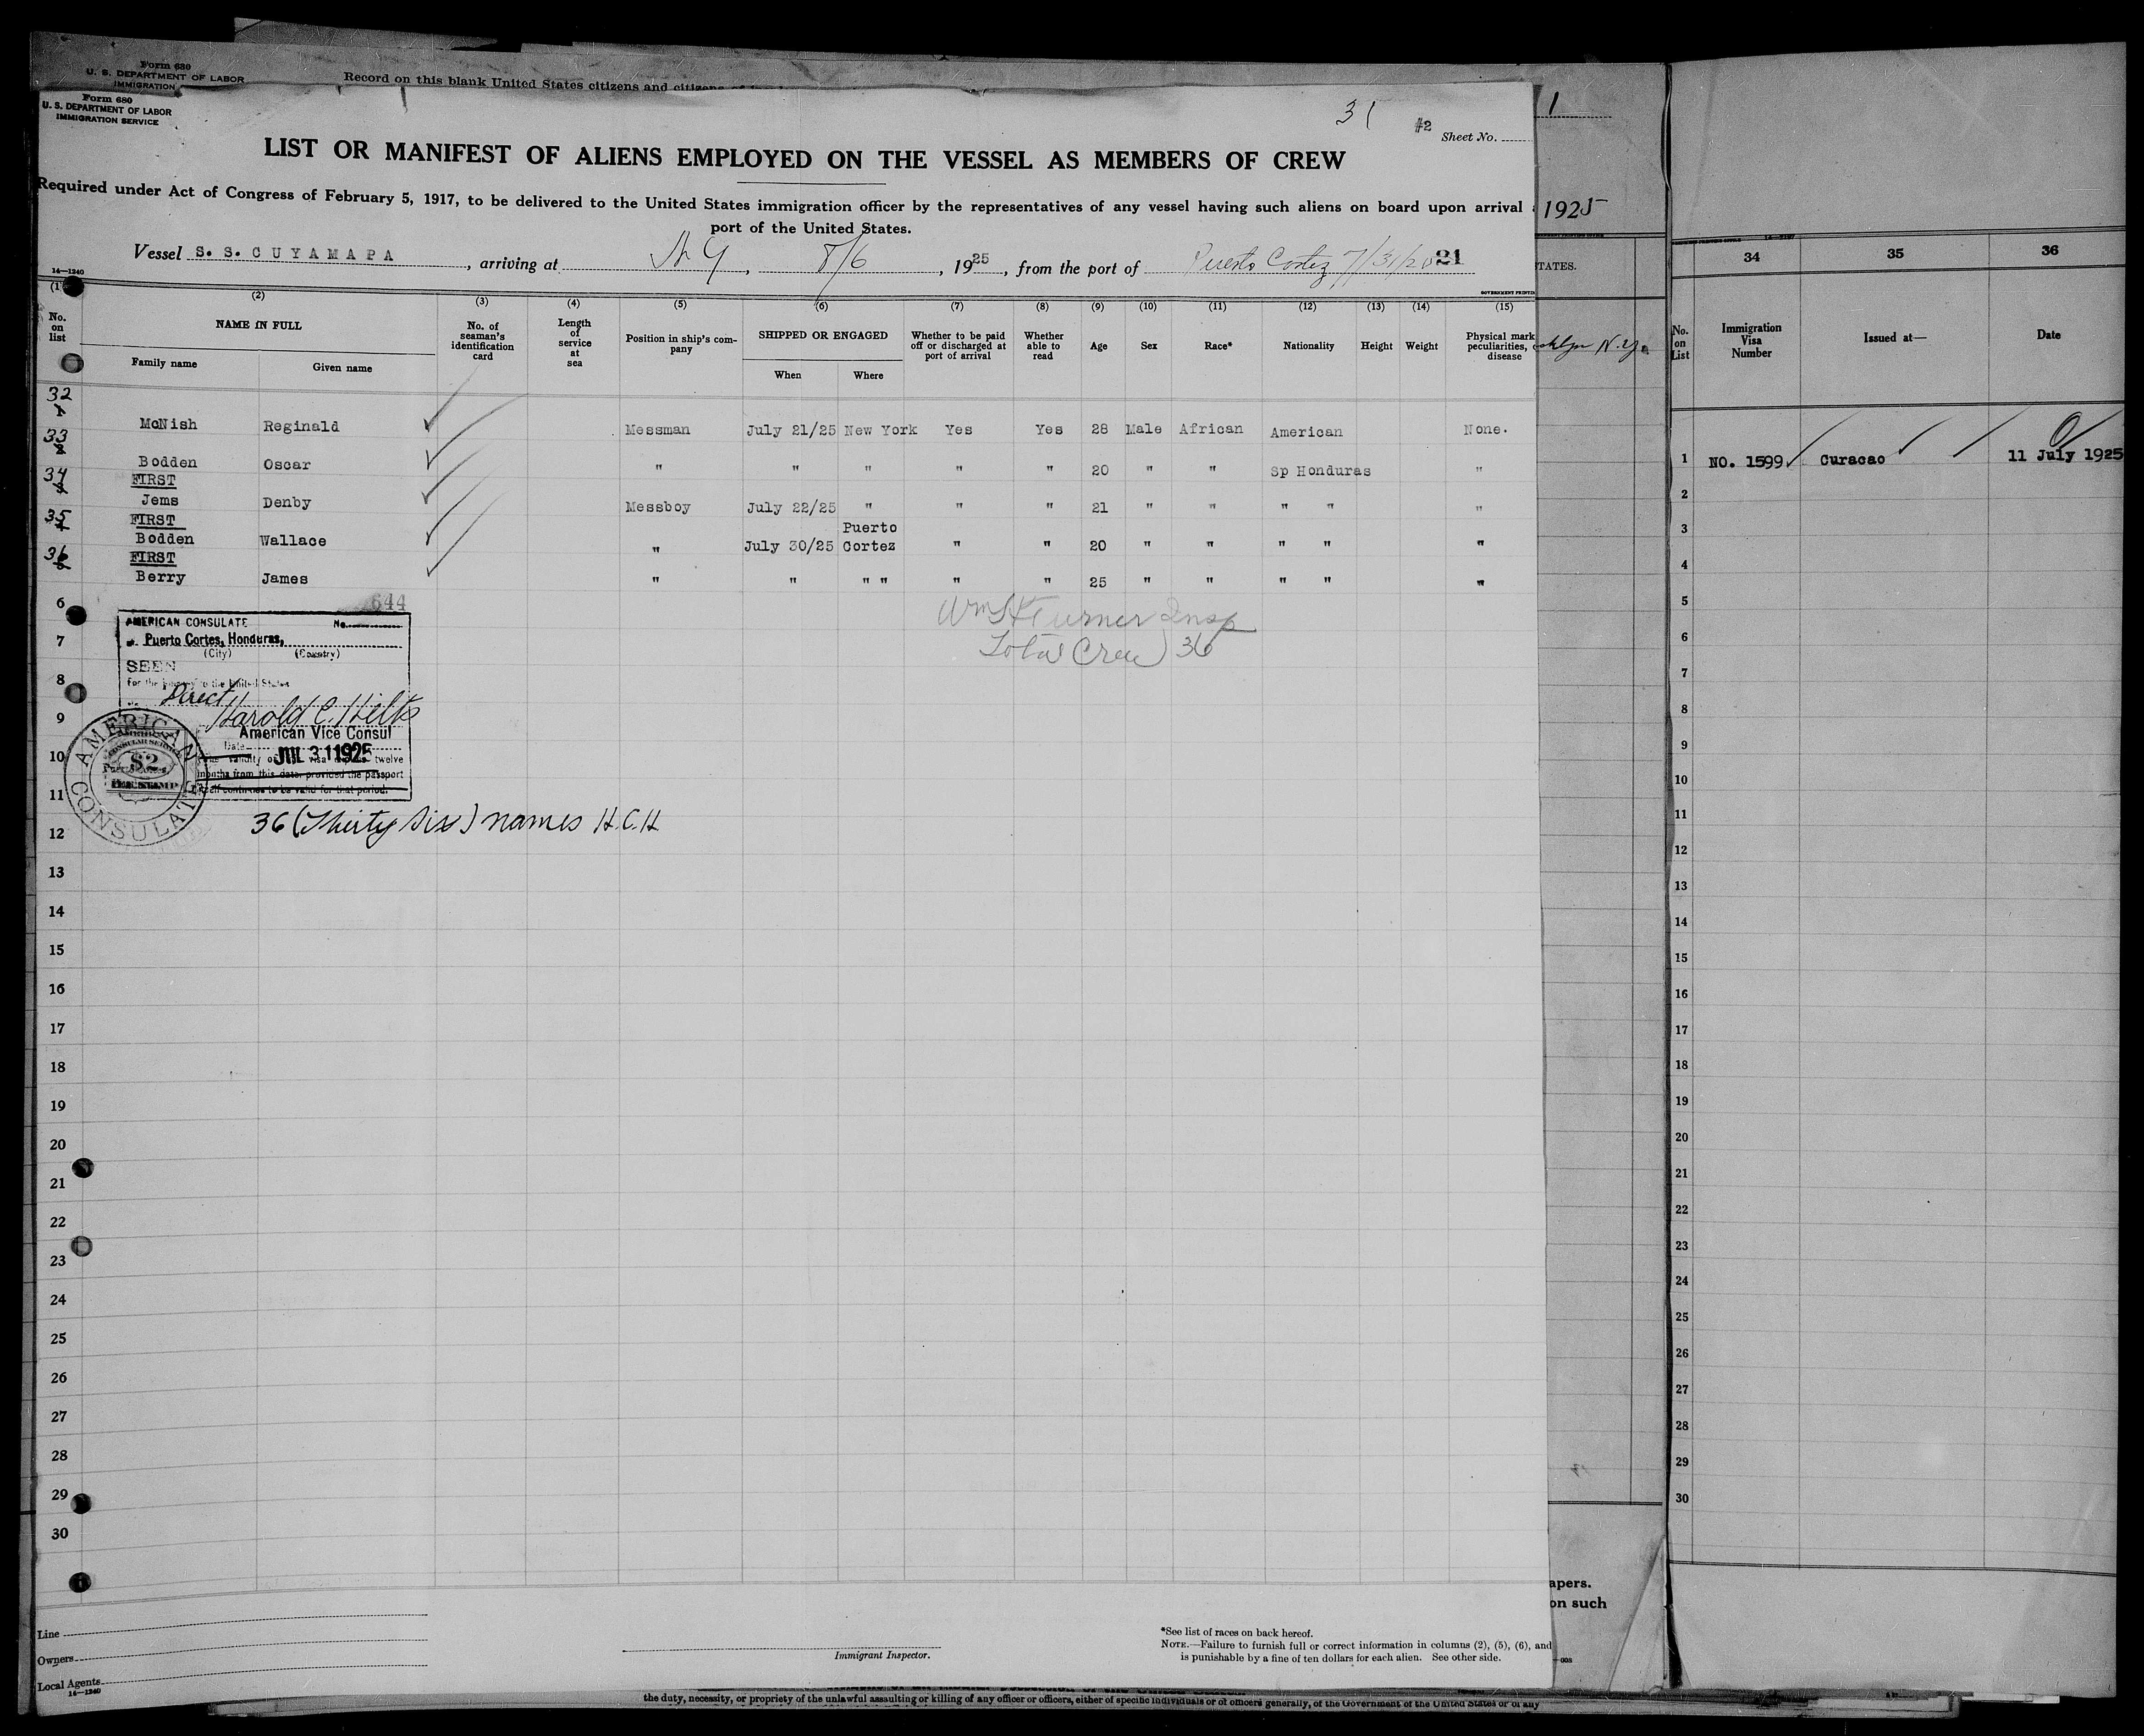 Form 680
U. S. DEPARTMENT OF LABOR
IMMIGRATION
Record on this blank United States citizens and citizens
Form 680
U. S. DEPARTMENT OF LABOR
IMMIGRATION SERVICE
31
#2 Sheet No.
LIST OR MANIFEST OF ALIENS EMPLOYED ON THE VESSEL AS MEMBERS OF CREW
Required under Act of Congress of February 5, 1917, to be delivered to the United States immigration officer by the representatives of any vessel having such aliens on board upon arrival
port of the United States.
Vessel S. S. CUYAMAPA, arriving at N Y, 8/6, 1925, from the port of Puerto Cortez 7/31/25 21
14—1240
(1) (2) (3) (4) (5) (6) (7) (8) (9) (10) (11) (12) (13) (14) (15)
No. on list
NAME IN FULL
Family name Given name
No. of seaman's identification card
Length of service at sea
Position in ship's company
SHIPPED OR ENGAGED
When Where
Whether to be paid off or discharged at port of arrival
Whether able to read
Age
Sex
Race*
Nationality
Height
Weight
Physical mark peculiarities, disease
32 1 McNish Reginald Messman July 21/25 New York Yes Yes 28 Male African American None.
33 2 Bodden Oscar " " " " " 20 " " Sp Honduras "
34 3 FIRST
Jems Denby Messboy July 22/25 " " " 21 " " " " "
35 4 FIRST Puerto
Bodden Wallace " July 30/25 Cortez " " 20 " " " " "
36 5 FIRST
Berry James " " " " " " 25 " " " " "
Wm H Turner Insp
Total Crew 36
644
AMERICAN CONSULATE No.
at Puerto Cortes, Honduras,
(City) (Country)
SEEN
For the journey to the United States
Direct
Harold C. Hilts
American Vice Consul
Date JUL 31 1925
The validity of this visa twelve
months from this date, provided the passport
itself continues to be valid for that period.
AMERICAN CONSULATE
$2
36 (Thirty Six) names H.C.H.
6
7
8
9
10
11
12
13
14
15
16
17
18
19
20
21
22
23
24
25
26
27
28
29
30
Line
Owners
Local Agents
14—1240
Immigrant Inspector.
*See list of races on back hereof.
NOTE.—Failure to furnish full or correct information in columns (2), (5), (6), and
is punishable by a fine of ten dollars for each alien. See other side.
the duty, necessity, or propriety of the unlawful assaulting or killing of any officer or officers, either of specific individuals or of officers generally, of the Government of the United States or of any
1
1925
TATES.
N.Y.
apers.
on such
34 35 36
No. on List
Immigration Visa Number
Issued at—
Date
1 NO. 1599 Curacao 11 July 1925
2
3
4
5
6
7
8
9
10
11
12
13
14
15
16
17
18
19
20
21
22
23
24
25
26
27
28
29
30